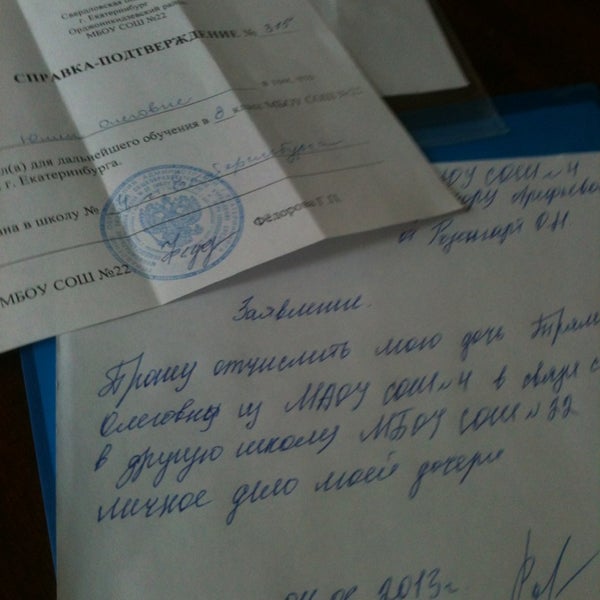 Свердловская
г. Екатеринбург
Орджоникидзевский район
МБОУ СОШ №22
СПРАВКА-ПОДТВЕРЖДЕНИЕ №
Олеговне в том, что
л(а) для дальнейшего обучения в 8 класс МБОУ СОШ №22
г. Екатеринбурга.
на в школу № 4 г. Екатеринбурга
МБОУ СОШ №22 Фёдорова Г.П.
МАОУ СОШ №4
от Розенгарт О.Н.
Заявление.
Прошу отчислить мою дочь
Олеговну из МАОУ СОШ №4 в связи с
в другую школу МБОУ СОШ №22
личное дело моей дочери
2013г.